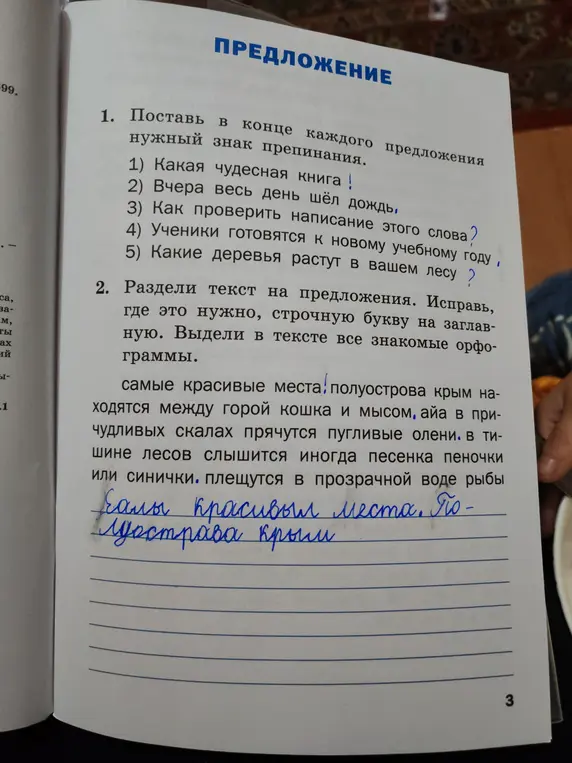 99.
ПРЕДЛОЖЕНИЕ
1. Поставь в конце каждого предложения
нужный знак препинания.
1) Какая чудесная книга!
2) Вчера весь день шёл дождь.
3) Как проверить написание этого слова?
4) Ученики готовятся к новому учебному году.
5) Какие деревья растут в вашем лесу?
2. Раздели текст на предложения. Исправь,
где это нужно, строчную букву на заглав-
ную. Выдели в тексте все знакомые орфо-
граммы.
самые красивые места! полуострова крым на-
ходятся между горой кошка и мысом. айа в при-
чудливых скалах прячутся пугливые олени. в ти-
шине лесов слышится иногда песенка пеночки
или синички. плещутся в прозрачной воде рыбы
красивыл места. По-
крым
3